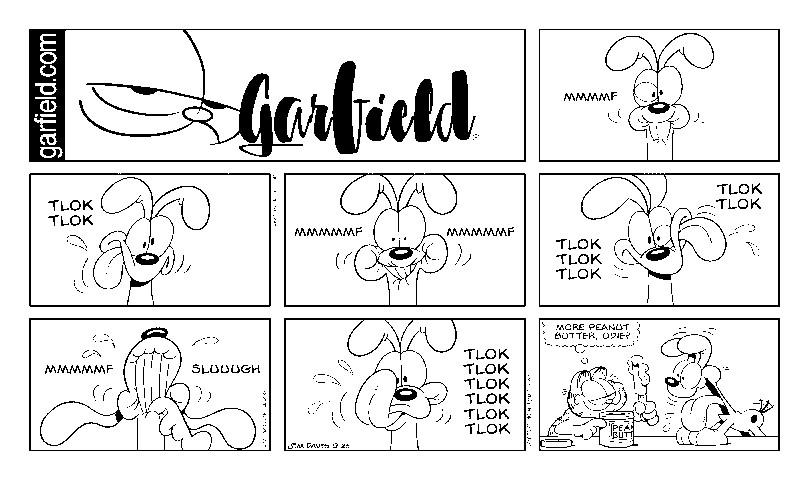 garfield.com
Garfield
MMMMF
TLOK
TLOK
MMMMMF
MMMMMF
TLOK
TLOK
TLOK
TLOK
TLOK
MMMMMF
SLUUUGH
TLOK
TLOK
TLOK
TLOK
TLOK
TLOK
JIM DAVIS
MORE PEANUT
BUTTER, ODIE?
PEA
BUT